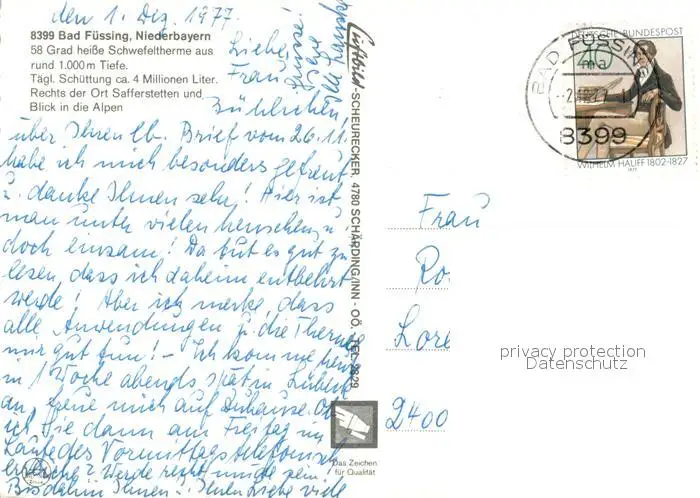 den 1. Dez. 1977.
8399 Bad Füssing, Niederbayern
58 Grad heiße Schwefeltherme aus
rund 1.000 m Tiefe.
Tägl. Schüttung ca. 4 Millionen Liter.
Rechts der Ort Safferstetten und
Blick in die Alpen
Liebe
Frau
über Ihren lb. Brief vom 26.11.
habe ich mich besonders gefreut
u. danke Ihnen sehr! Hier ist
man unter vielen Menschen u.
doch einsam! Da tut es gut zu
lesen, dass ich daheim entbehrt
werde! Aber ich merke, dass
alle Anwendungen u. die Therme
mir gut tun! - Ich komme heut
in 1 Woche abends spät in Lübeck
an, freue mich auf Zuhause. Ob
ich Sie dann am Freitag im
Laufe des Vormittags telefonisch
erreiche? Werde recht müde sein!
Bis dahin Ihnen! Ihnen Liebe viele
Grüsse!
Ihre
Luftbild-SCHEURECKER, 4780 SCHÄRDING/INN - OÖ. TEL. 2829
Das Zeichen
für Qualität
DEUTSCHE BUNDESPOST
WILHELM HAUFF 1802-1827
1977
BAD FÜSSING
8399
Frau
Ro
Lore
2400
privacy protection
Datenschutz